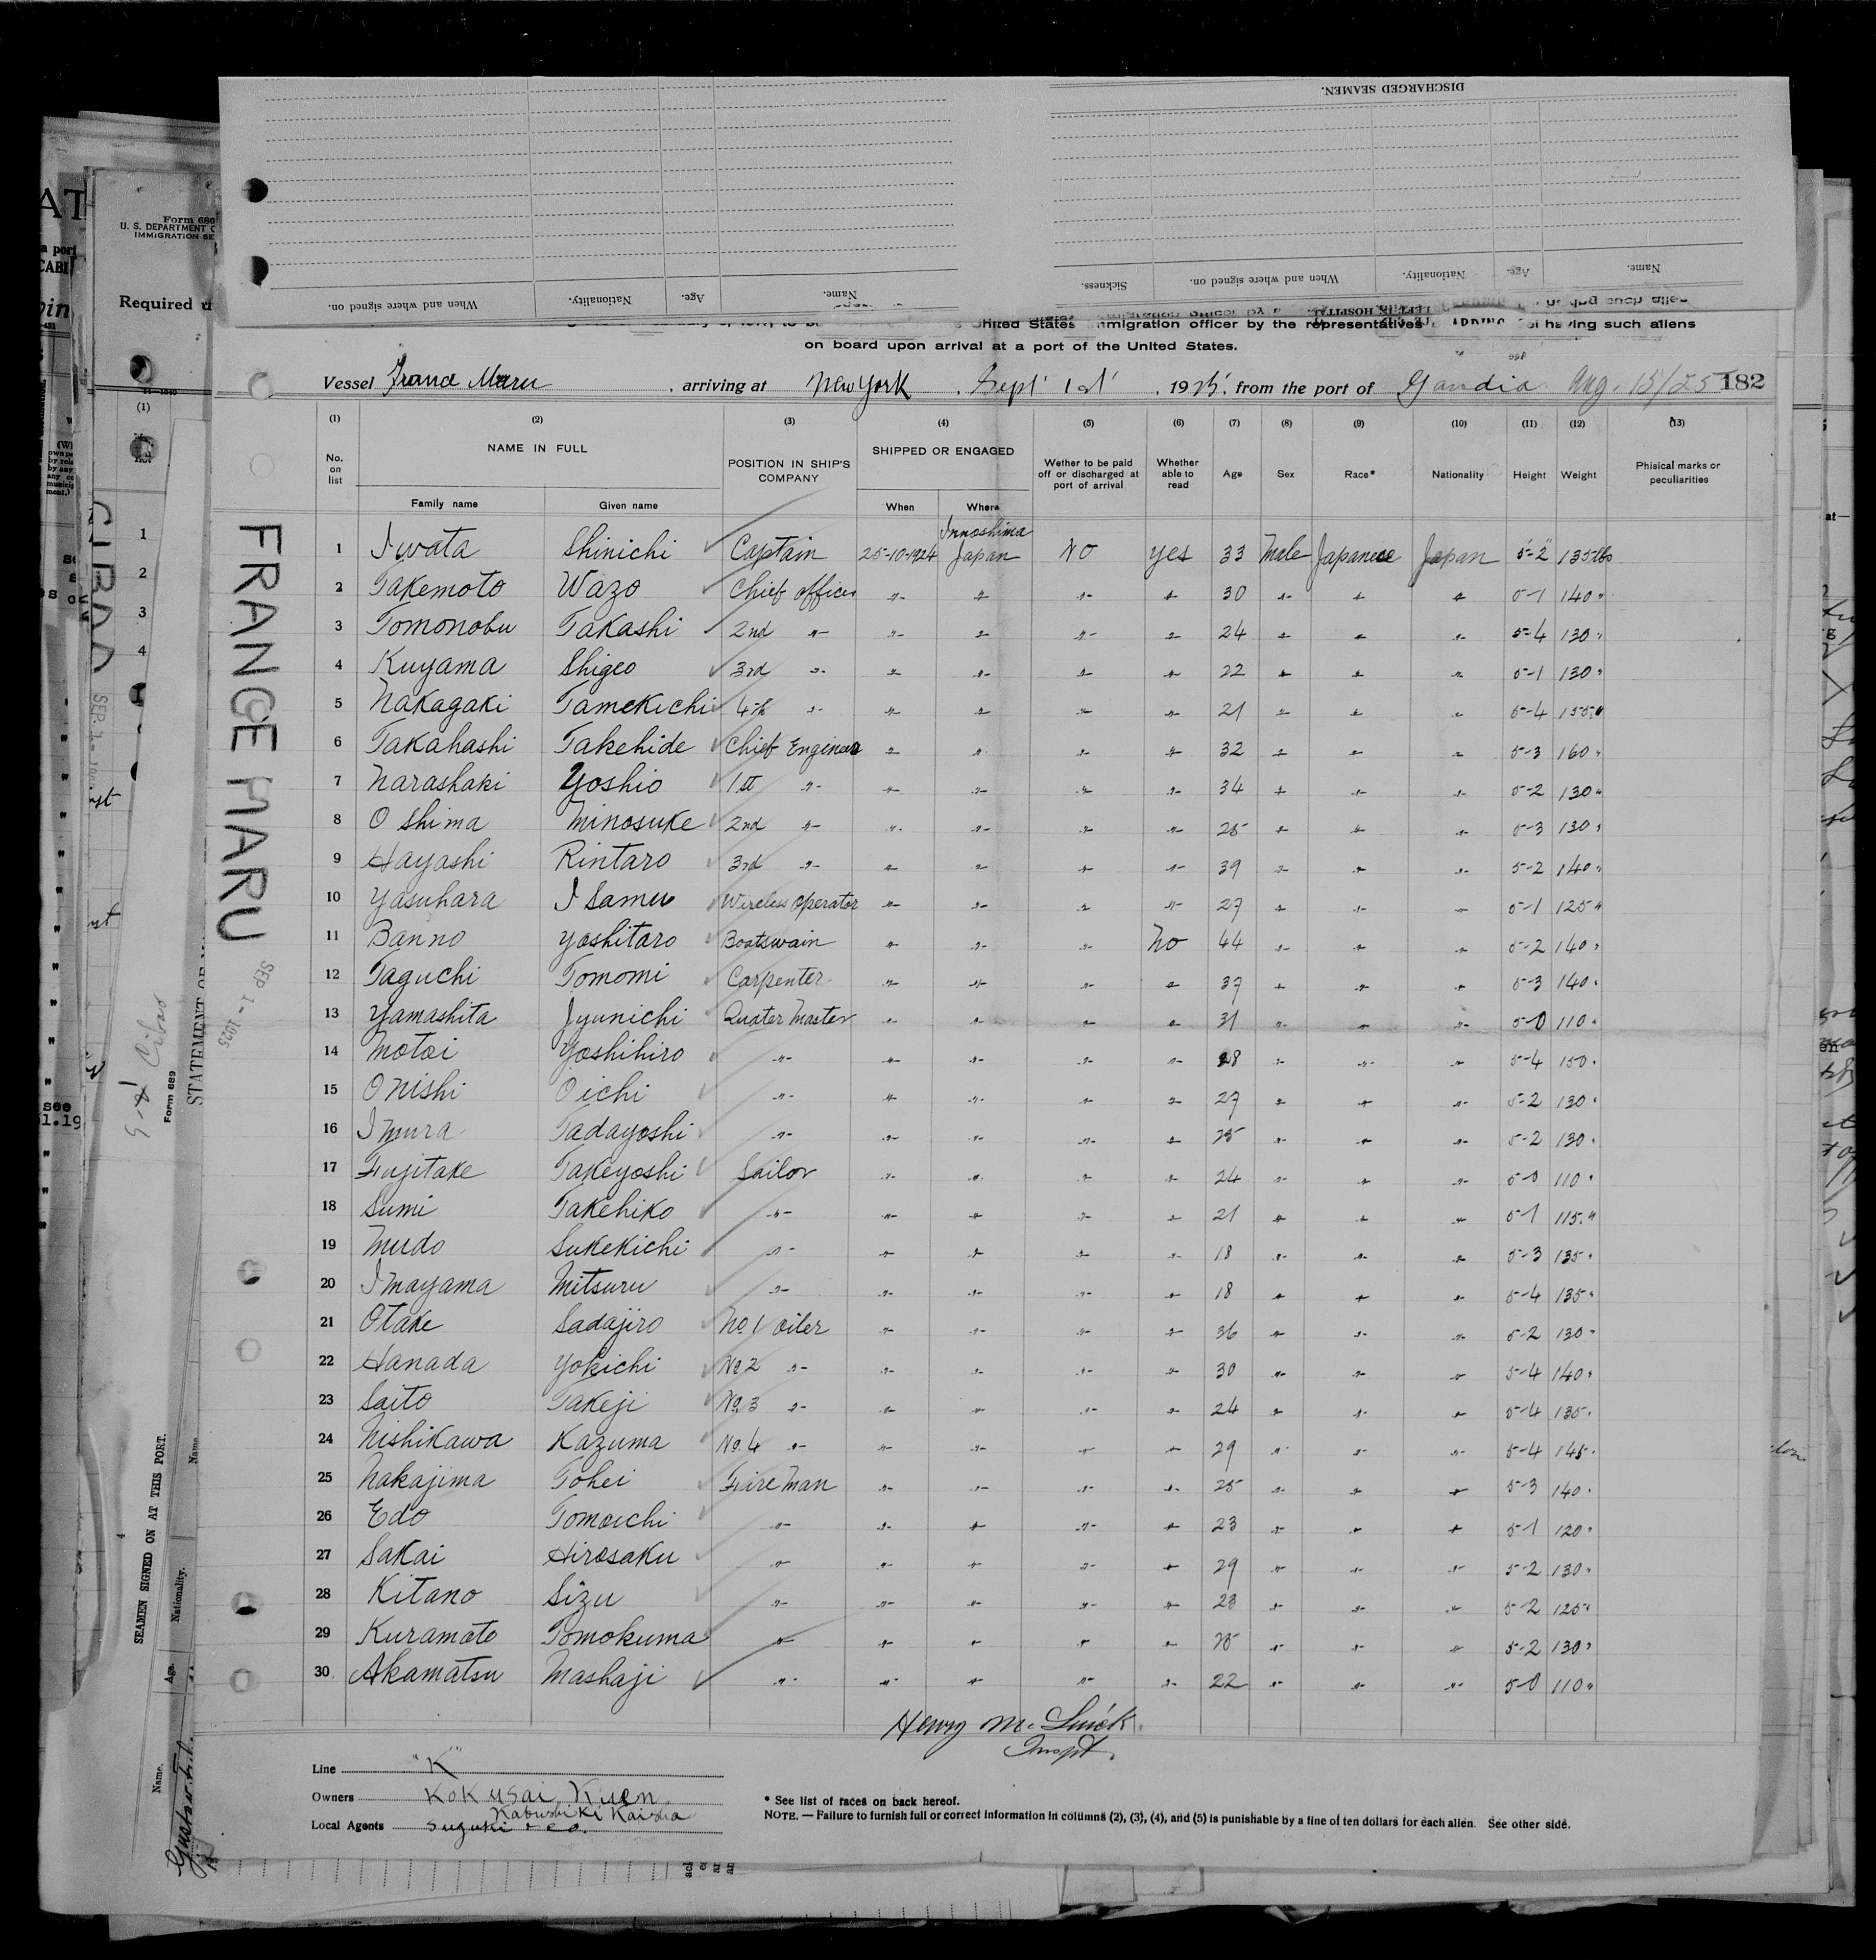 DISCHARGED SEAMEN.
When and where signed on.
Nationality.
Age.
Name.
Sickness.
When and where signed on.
Nationality.
Age.
Name.
LEFT IN HOSPITAL
United States immigration officer by the representatives having such aliens
on board upon arrival at a port of the United States.
Vessel France Maru, arriving at New York, Sept 1st, 1925, from the port of Gandia Aug. 15/25 182
(1) (2) (3) (4) (5) (6) (7) (8) (9) (10) (11) (12) (13)
No. on list
NAME IN FULL
Family name
Given name
POSITION IN SHIP'S COMPANY
SHIPPED OR ENGAGED
When
Where
Wether to be paid off or discharged at port of arrival
Whether able to read
Age
Sex
Race*
Nationality
Height
Weight
Phisical marks or peculiarities
1 Iwata Shinichi Captain 25-10-1924 Innoshima Japan No yes 33 Male Japanese Japan 5-2" 135 lbs
2 Takemoto Wazo Chief officer " " " " 30 " " " 5-1 140 "
3 Tomonobu Takashi 2nd " " " " " 24 " " " 5-4 130 "
4 Kuyama Shigeo 3rd " " " " " 22 " " " 5-1 130 "
5 Nakagaki Tamekichi 4th " " " " " 21 " " " 5-4 155 "
6 Takahashi Takehide Chief Engineer " " " " 32 " " " 5-3 160 "
7 Narashaki Yoshio 1st " " " " " 34 " " " 5-2 130 "
8 Oshima Minosuke 2nd " " " " " 25 " " " 5-3 130 "
9 Hayashi Rintaro 3rd " " " " " 39 " " " 5-2 140 "
10 Yasuhara Isamu Wireless operator " " " " 27 " " " 5-1 125 "
11 Banno Yoshitaro Boatswain " " " No 44 " " " 5-2 140 "
12 Taguchi Tomomi Carpenter " " " " 37 " " " 5-3 140 "
13 Yamashita Jyunichi Quater Master " " " " 31 " " " 5-0 110 "
14 Motoi Yoshihiro " " " " " 28 " " " 5-4 150 "
15 Onishi Oichi " " " " " 27 " " " 5-2 130 "
16 Imura Tadayoshi " " " " " 25 " " " 5-2 130 "
17 Fujitake Takeyoshi Sailor " " " " 24 " " " 5-0 110 "
18 Sumi Takehiko " " " " " 21 " " " 5-1 115 "
19 Mudo Sukekichi " " " " " 18 " " " 5-3 135 "
20 Imayama Mitsuru " " " " " 18 " " " 5-4 135 "
21 Otake Sadajiro No. 1 oiler " " " " 36 " " " 5-2 130 "
22 Hanada Yokichi No. 2 " " " " " 30 " " " 5-4 140 "
23 Saito Takeji No. 3 " " " " " 24 " " " 5-4 135 "
24 Nishikawa Kazuma No. 4 " " " " " 29 " " " 5-4 145 "
25 Nakajima Tohei Fire Man " " " " 25 " " " 5-3 140 "
26 Edo Tomoichi " " " " " 23 " " " 5-1 120 "
27 Sakai Hirosaku " " " " " 29 " " " 5-2 130 "
28 Kitano Sizu " " " " " 23 " " " 5-2 125 "
29 Kuramoto Tomokuma " " " " " 25 " " " 5-2 130 "
30 Akamatsu Mashaji " " " " " 22 " " " 5-0 110 "
Henry M.
Inspt.
Line "K"
Owners Kokusai Kisen
Kabushiki Kaisha
Local Agents Suzuki & Co.
* See list of races on back hereof.
NOTE. — Failure to furnish full or correct information in columns (2), (3), (4), and (5) is punishable by a fine of ten dollars for each alien. See other side.
FRANCE MARU
SEP 1 - 1925
Form 680
U. S. DEPARTMENT
IMMIGRATION
Required
(1)
1
2
3
4
CIBAO
Cibao
Form 689
STATEMENT OF
SEAMEN SIGNED ON AT THIS PORT.
Name.
Age.
Nationality.
Name